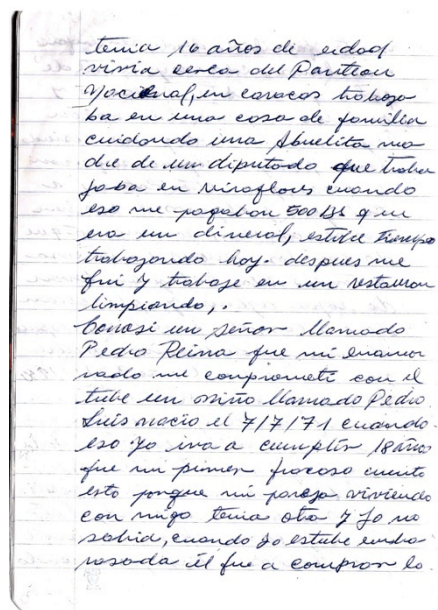 tenia 16 años de edad
vivia cerca del Panteon
Nacional, en caracas trabaja
ba en una casa de familia
cuidando una Abuelita ma
dre de un diputado que traba
jaba en miraflores cuando
eso me pagaban 500 Bs q un
era un dineral, estube tiempo
trabajando hay. despues me
fui y trabaje en un restauran
limpiando,.
Conosi un señor llamado
Pedro Reina fue mi enamor
rado me comprometi con el
tube un niño llamado Pedro
Luis nacio el 7/7/71 cuando
eso yo iva a cumplir 18 años
fue mi primer fracaso cuento
esto porque mi pareja viviendo
con migo tenia otra y yo no
sabia, cuando yo estube emba
rasada él fue a comprar lo